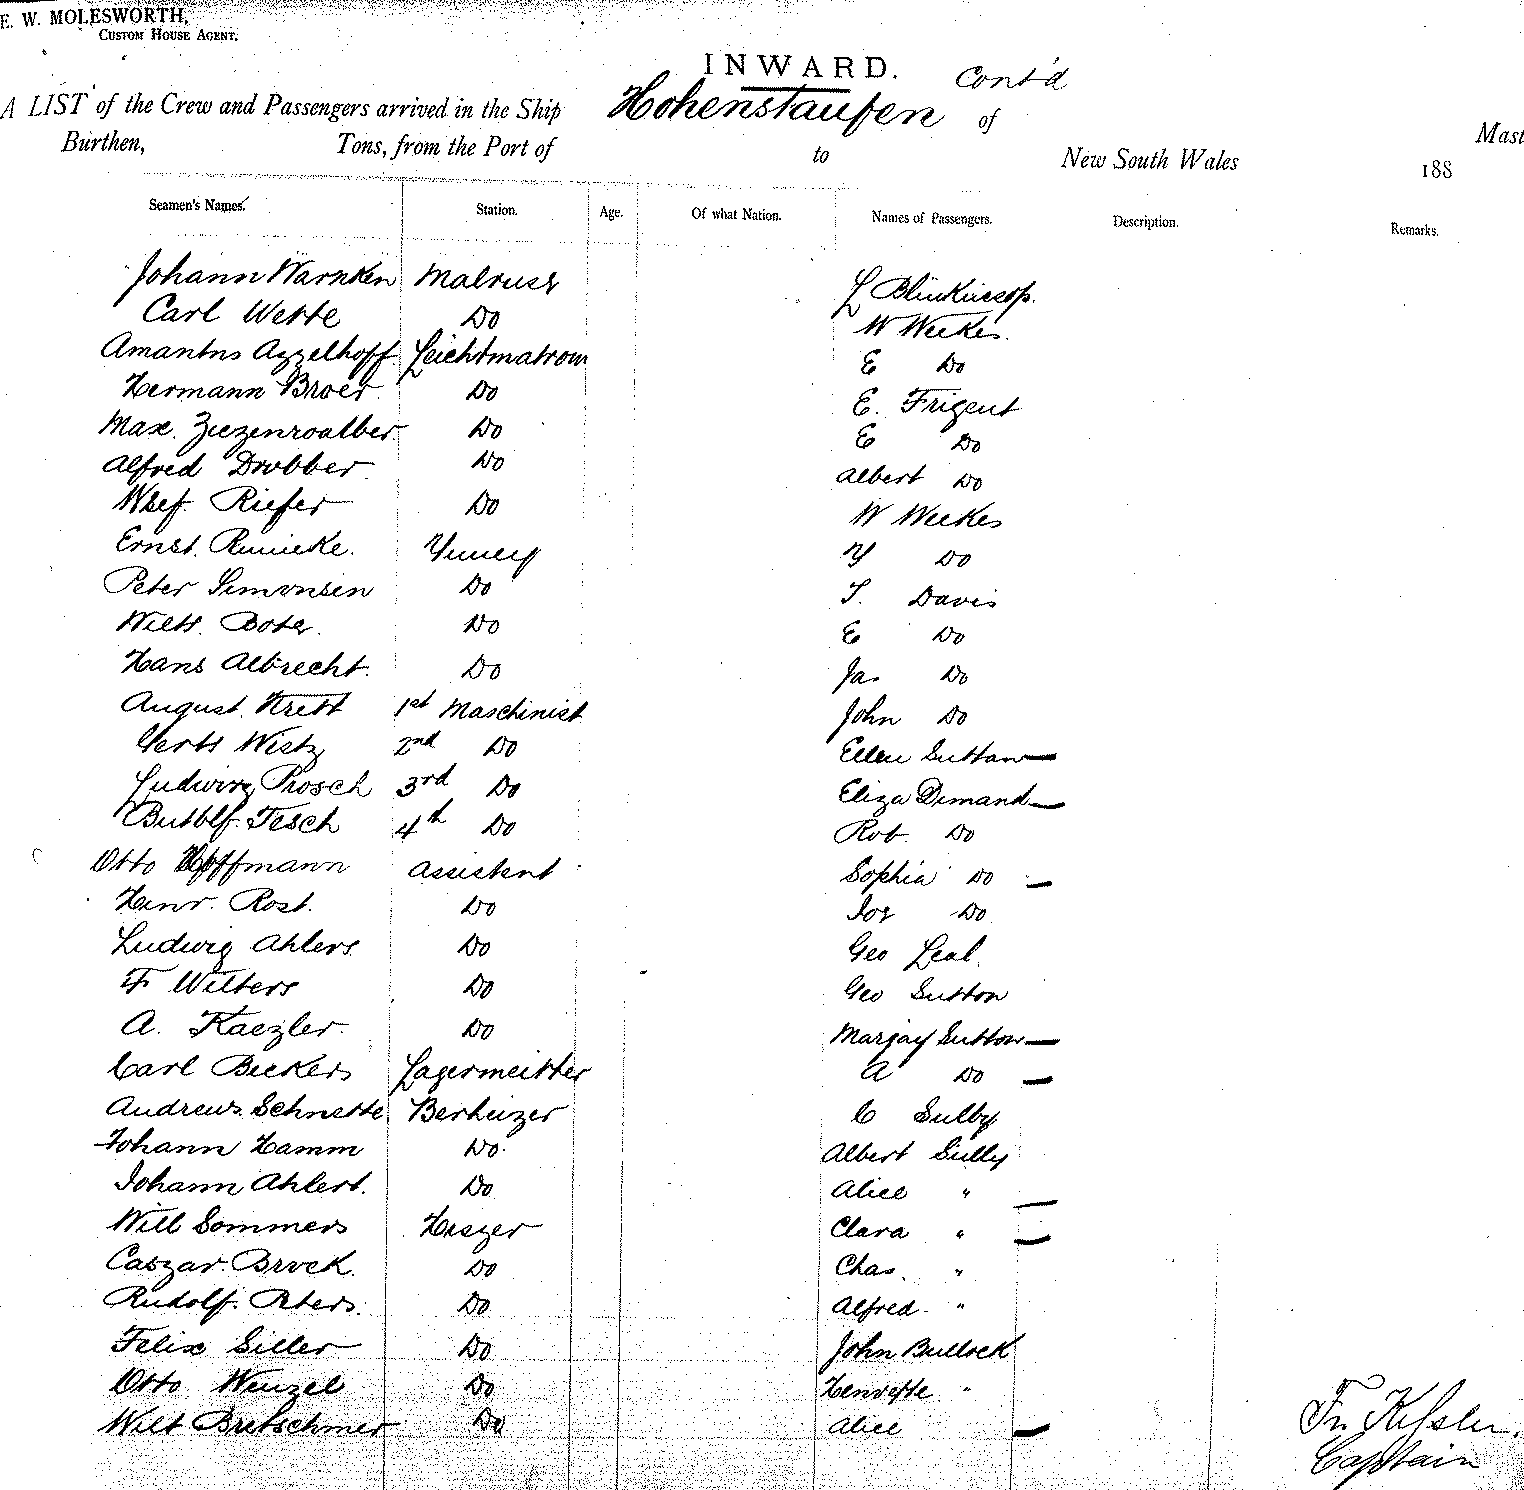 E. W. MOLESWORTH,
CUSTOM HOUSE AGENT.
INWARD. Cont'd
A LIST of the Crew and Passengers arrived in the Ship Hohenstaufen of Mast
Burthen, Tons, from the Port of to New South Wales 188
Seamen's Names. Station. Age. Of what Nation. Names of Passengers. Description. Remarks.
Johann Warnken Matrose L Blinkinsop.
Carl Wette Do W Weekes.
Amantus Apzelhoff Leichtmatrosn E Do
Hermann Broer Do E. Frigent
Max. Do E Do
Alfred Drobber Do Albert Do
Riefer Do W Weekes
Ernst. Reinicke. Do
Peter Simonsen Do T. Davis
Boter. Do E Do
Hans Albrecht. Do Jas Do
August. Krett 1st Maschinist John Do
Wistz 2nd Do Ellen Sutton
Ludwig Prosch 3rd Do Eliza Dimand
Tesch 4th Do Rob. Do
Otto Hoffmann Assistent Sophia Do
Heinr. Rost. Do Do
Ludwig Ahlers Do Geo Leal.
F Wilters Do Geo Sutton
A. Kaezler. Do Sutton
Carl Beckers Lagermeister A Do
Andrews. Schnette. Berheizer C Sulby
Johann Hamm Do. Albert Sully
Johann Ahlert. Do Alice "
Will Sommers Heszer Clara "
Caszar. Brock. Do Chas. "
Rudolf. Peters. Do Alfred "
Felix Siller Do John Bullock
Otto Wenzel Do "
Wilt Bretschmer Do Alice
Captain